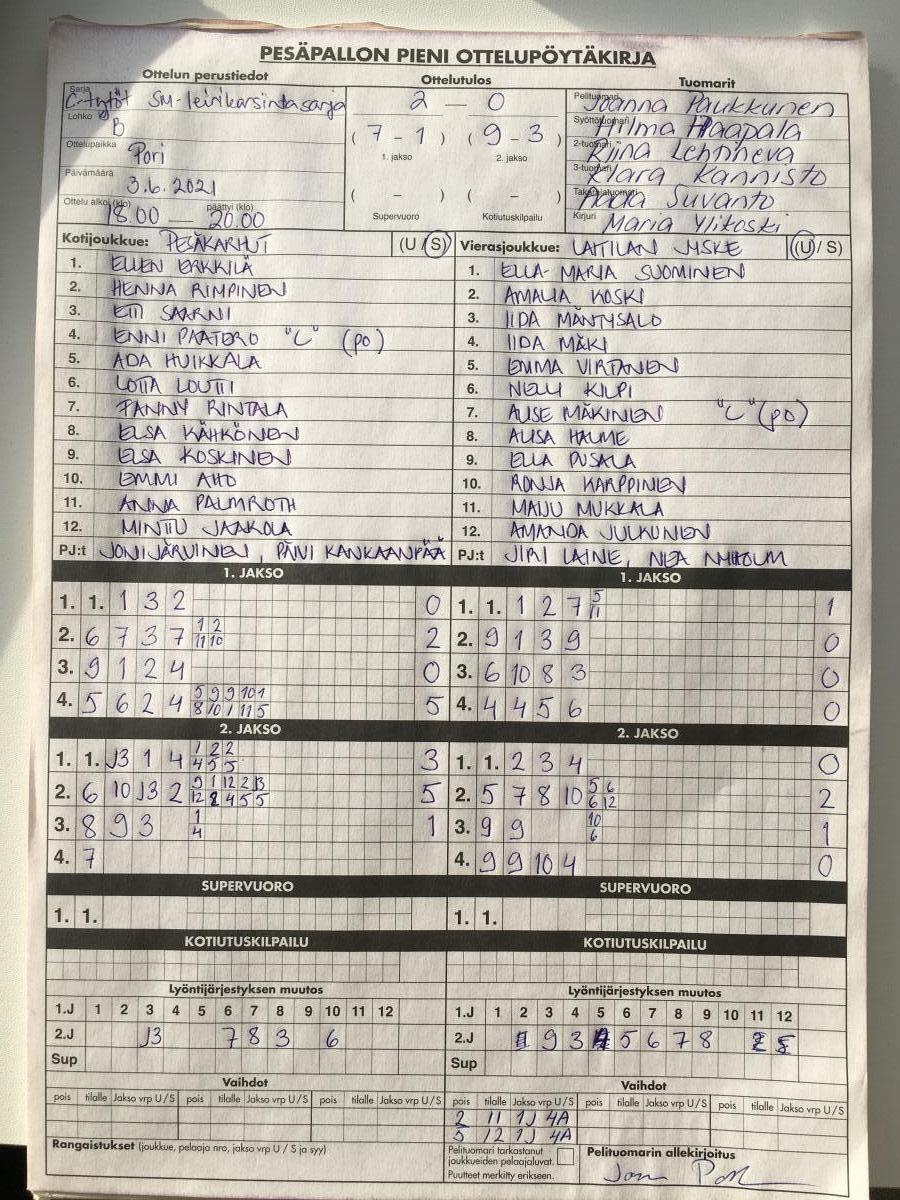 PESÄPALLON PIENI OTTELUPÖYTÄKIRJA
Ottelun perustiedot Ottelutulos Tuomarit
Sarja C-tytöt SM-leirikarsintasarja 2 — 0 Pelituomari Joanna Paukkunen
Lohko B ( 7 - 1 ) ( 9 - 3 ) Syöttötuomari Hilma Haapala
1. jakso 2. jakso
Ottelupaikka Pori 2-tuomari Kiina Lehtineva
Päivämäärä 3.6.2021 ( – ) ( – ) 3-tuomari Klara Kannisto
Ottelu alkoi (klo) 18.00 — päättyi (klo) 20.00 Takarajatuomari Suvanto
Supervuoro Kotiutuskilpailu Kirjuri Maria Ylikoski
Kotijoukkue: PESÄKARHUT (U / S) Vierasjoukkue: LAITILAN JYSKE (U / S)
1. ELLEN ERKKILÄ 1. ELLA-MARIA SUOMINEN
2. HENNA RIMPINEN 2. AMALIA KOSKI
3. ETTI SAARNI 3. IIDA MÄNTYSALO
4. ENNI PAATERO "C" (po) 4. IIDA MÄKI
5. ADA HUIKKALA 5. EMMA VIRTANEN
6. LOTTA LOUTTI 6. NELLI KILPI
7. FANNY RINTALA 7. ALISE MÄKINIEN "C" (po)
8. ELSA KÄHKÖNEN 8. ALISA HALME
9. ELSA KOSKINEN 9. ELLA PUSALA
10. EMMI AHO 10. RONJA KARPPINEN
11. ANNA PALMROTH 11. MAIJU MUKKALA
12. MINTTU JAAKOLA 12. AMANDA JULKUNEN
PJ:t JONI JÄRVINEN, PÄIVI KANKAANPÄÄ PJ:t JIRI LAINE, NEA
1. JAKSO 1. JAKSO
1. 1. 1 3 2 0 1. 1. 1 2 7 5/11 1
2. 6 7 3 7 1/11 2/10 2 2. 9 1 3 9 0
3. 9 1 2 4 0 3. 6 10 8 3 0
4. 5 6 2 4 5/8 9/10 9/1 10/11 1/5 5 4. 4 4 5 6 0
2. JAKSO 2. JAKSO
1. 1. J3 1 4 1/4 2/5 2/5 3 1. 1. 2 3 4 0
2. 6 10 J3 2 9/12 1/2 12/4 2/5 J3/5 5 2. 5 7 8 10 5/6 6/12 2
3. 8 9 3 1/4 1 3. 9 9 10/6 1
4. 7 4. 9 9 10 4 0
SUPERVUORO SUPERVUORO
1. 1. 1. 1.
KOTIUTUSKILPAILU KOTIUTUSKILPAILU
Lyöntijärjestyksen muutos Lyöntijärjestyksen muutos
1.J 1 2 3 4 5 6 7 8 9 10 11 12 1.J 1 2 3 4 5 6 7 8 9 10 11 12
2.J J3 7 8 3 6 2.J 9 3 5 6 7 8
Sup Sup
Vaihdot Vaihdot
pois tilalle Jakso vrp U/S pois tilalle Jakso vrp U/S pois tilalle Jakso vrp U/S pois tilalle Jakso vrp U/S pois tilalle Jakso vrp U/S pois tilalle Jakso vrp U/S
2 11 1J 4A
5 12 1J 4A
Rangaistukset (joukkue, pelaaja nro, jakso vrp U / S ja syy) Pelituomari tarkastanut joukkueiden pelaajaluvat. Puutteet merkitty erikseen. Pelituomarin allekirjoitus